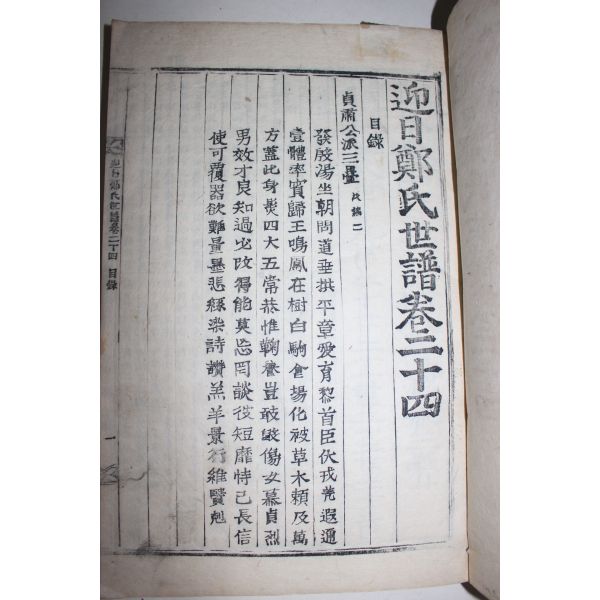 迎日鄭氏世譜卷二十四
目錄
貞肅公派三疊 二
發殷湯坐朝問道垂拱平章愛育黎首臣伏戎羌遐邇
壹體率賓歸王鳴鳳在樹白駒食場化被草木賴及萬
方蓋此身髮四大五常恭惟鞠養豈敢毀傷女慕貞烈
男效才良知過必改得能莫忘罔談彼短靡恃己長信
使可覆器欲難量墨悲絲染詩讚羔羊景行維賢剋
迎日鄭氏世譜卷二十四 目錄 一